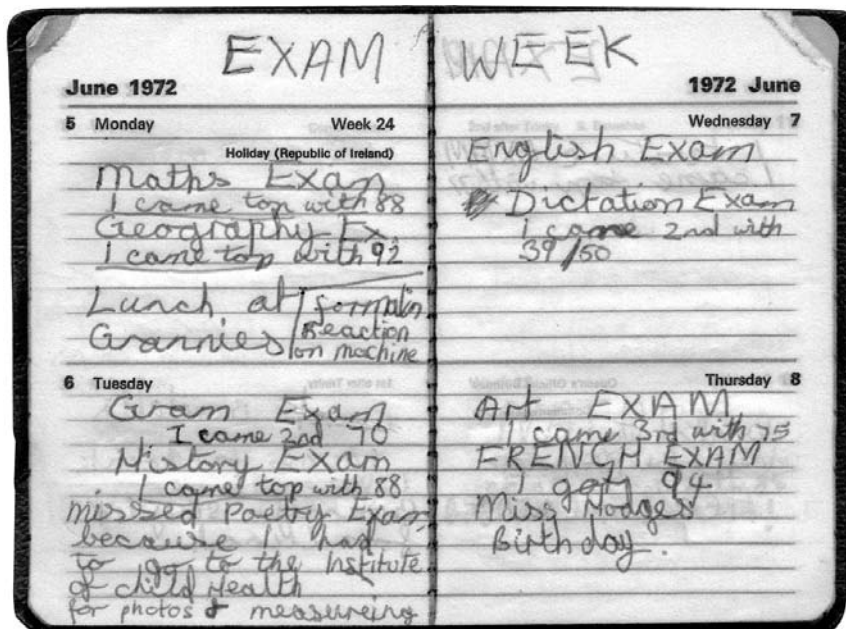 EXAM WEEK
June 1972
5 Monday Week 24
Holiday (Republic of Ireland)
Maths Exam
I came top with 88
Geography Ex.
I came top with 92
Lunch at
Grannies
Reaction
on machine
6 Tuesday
Gram Exam
I came 2nd 70
History Exam
I came top with 88
missed Poetry Exam
because I had
to go to the Institute
of child Health
for photos & measureing
1972 June
Wednesday 7
English Exam
Dictation Exam
I came 2nd with
39/50
Thursday 8
Art EXAM
I came 3rd with 75
FRENCH EXAM
I got 94
Miss Hodges
Birthday.